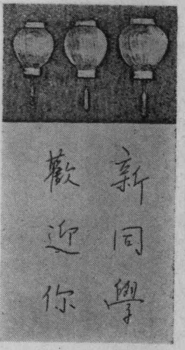 新同學
歡迎你